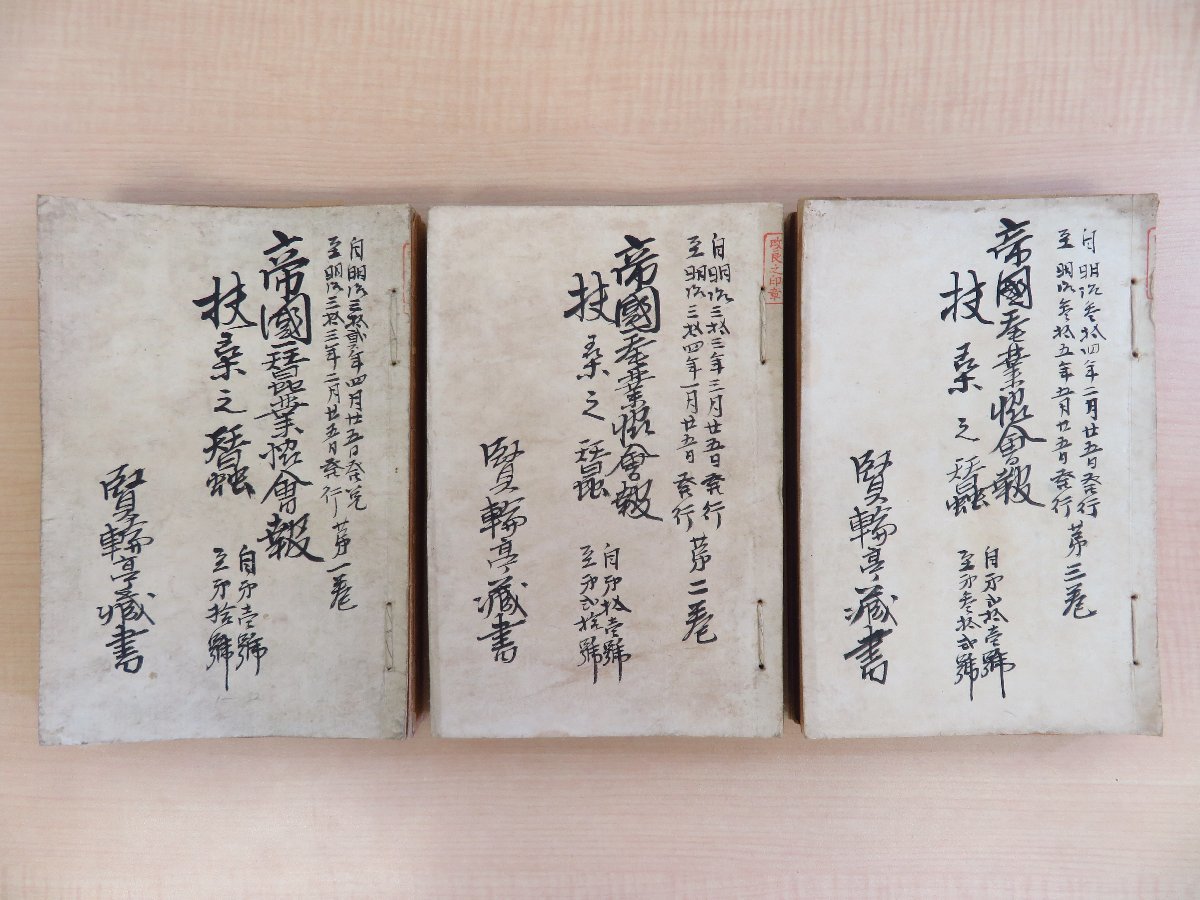 自明治三拾貳年四月廿五日発兌
至明治三拾三年二月廿五日発行 第一巻
帝國蠶業恊會報
扶桑之蠶
自第壹號
至第拾號
賢輪亭藏書
改良之印章
自明治三拾三年三月廿五日発行
至明治三拾四年一月廿五日発行 第二巻
帝國蚕業恊會報
扶桑之蠶
自第拾壹號
至第弐拾號
賢輪亭藏書
自明治参拾四年二月廿五日発行
至明治参拾五年五月廿五日発行 第三巻
帝國蚕業恊會報
扶桑之蠶
自第弐拾壹號
至第参拾弐號
賢輪亭藏書